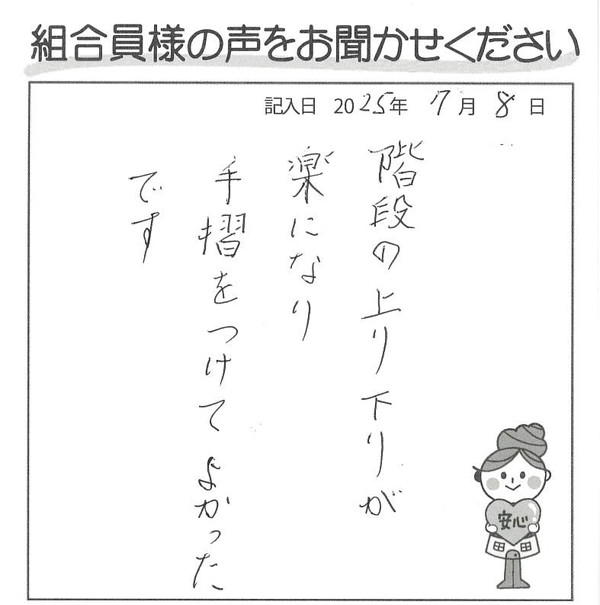 組合員様の声をお聞かせください
記入日 2025年 7月 8日
階段の上り下りが
楽になり
手摺をつけてよかった
です
安心